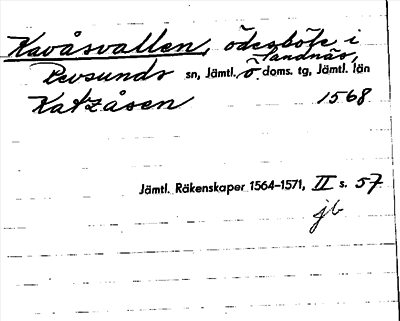 Kavåsvallen, ödesböle i
Tandnäs,
Revsunds sn, Jämtl. ö. doms. tg, Jämtl. län
Katzåsen 1568
Jämtl. Räkenskaper 1564-1571, II s. 57
jb